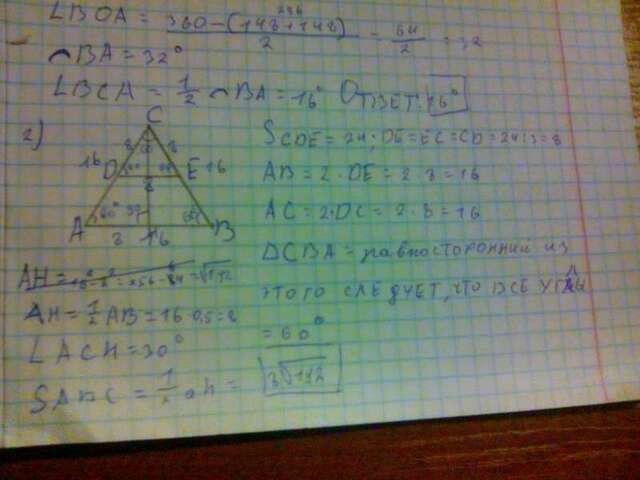 ∠BOA = 360-(148+148)/2 = 64/2 = 32
296
⌒BA = 32°
∠BCA = 1/2 ⌒BA = 16° Ответ: 16°
2)
C
8 8
16 D E 16
8
A 60° B
8 16
SCDE = 24; DE=EC=CD=24:3=8
AB = 2·DE = 2·8=16
AC = 2·DC = 2·8=16
△CBA - равносторонний из
этого следует, что все углы
= 60°
AH = =√192
AH = 1/2 AB = 16·0,5=8
∠ACH=30°
SABC = 1/2 ah = 8√192